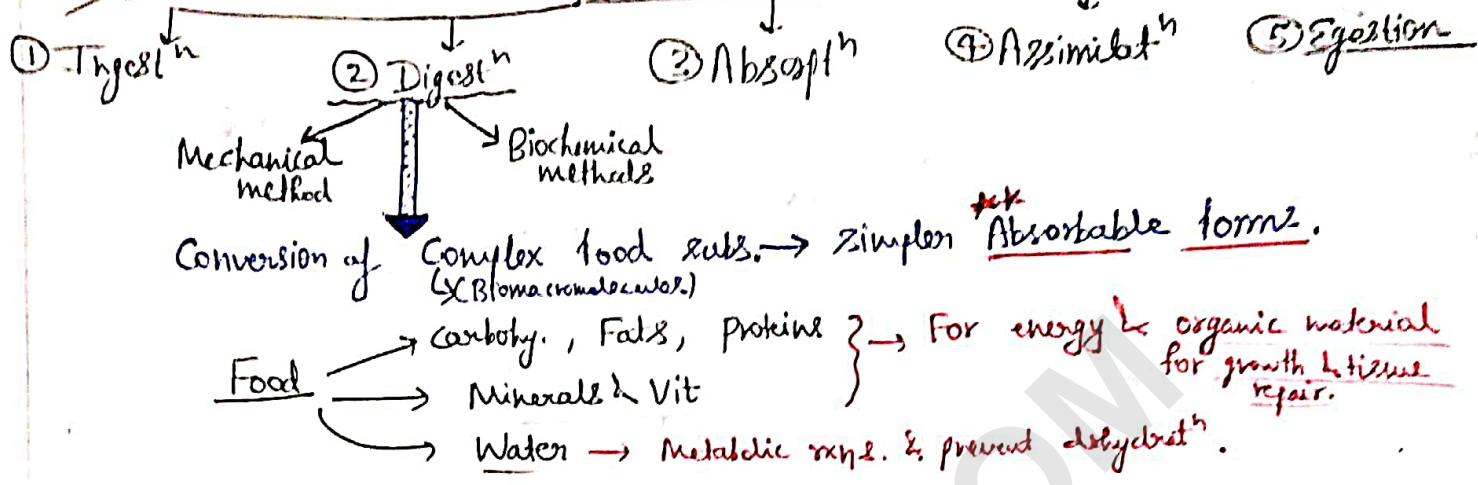 ① Ingestⁿ ② Digestⁿ ③ Absorptⁿ ④ Assimilatⁿ ⑤ Egestion
Mechanical method
Biochemical methods
Conversion of Complex food subs. → simpler Absorbable forms.
(Biomacromolecules)
Food → carbohy., Fats, Proteins } → For energy & organic material for growth & tissue repair.
→ Minerals & Vit
→ Water → Metabolic rxns. & prevent dehydratⁿ.